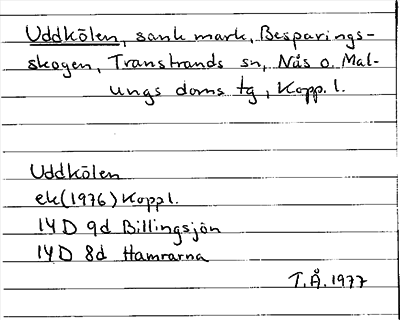 Uddkölen, sank mark, Besparings-
skogen, Transtrands sn, Nås o. Mal-
ungs doms tg, Kopp. l.
Uddkölen
ek (1976) Kopp l.
14 D 9d Billingsjön
14 D 8d Hamrarna
T.Å. 1977